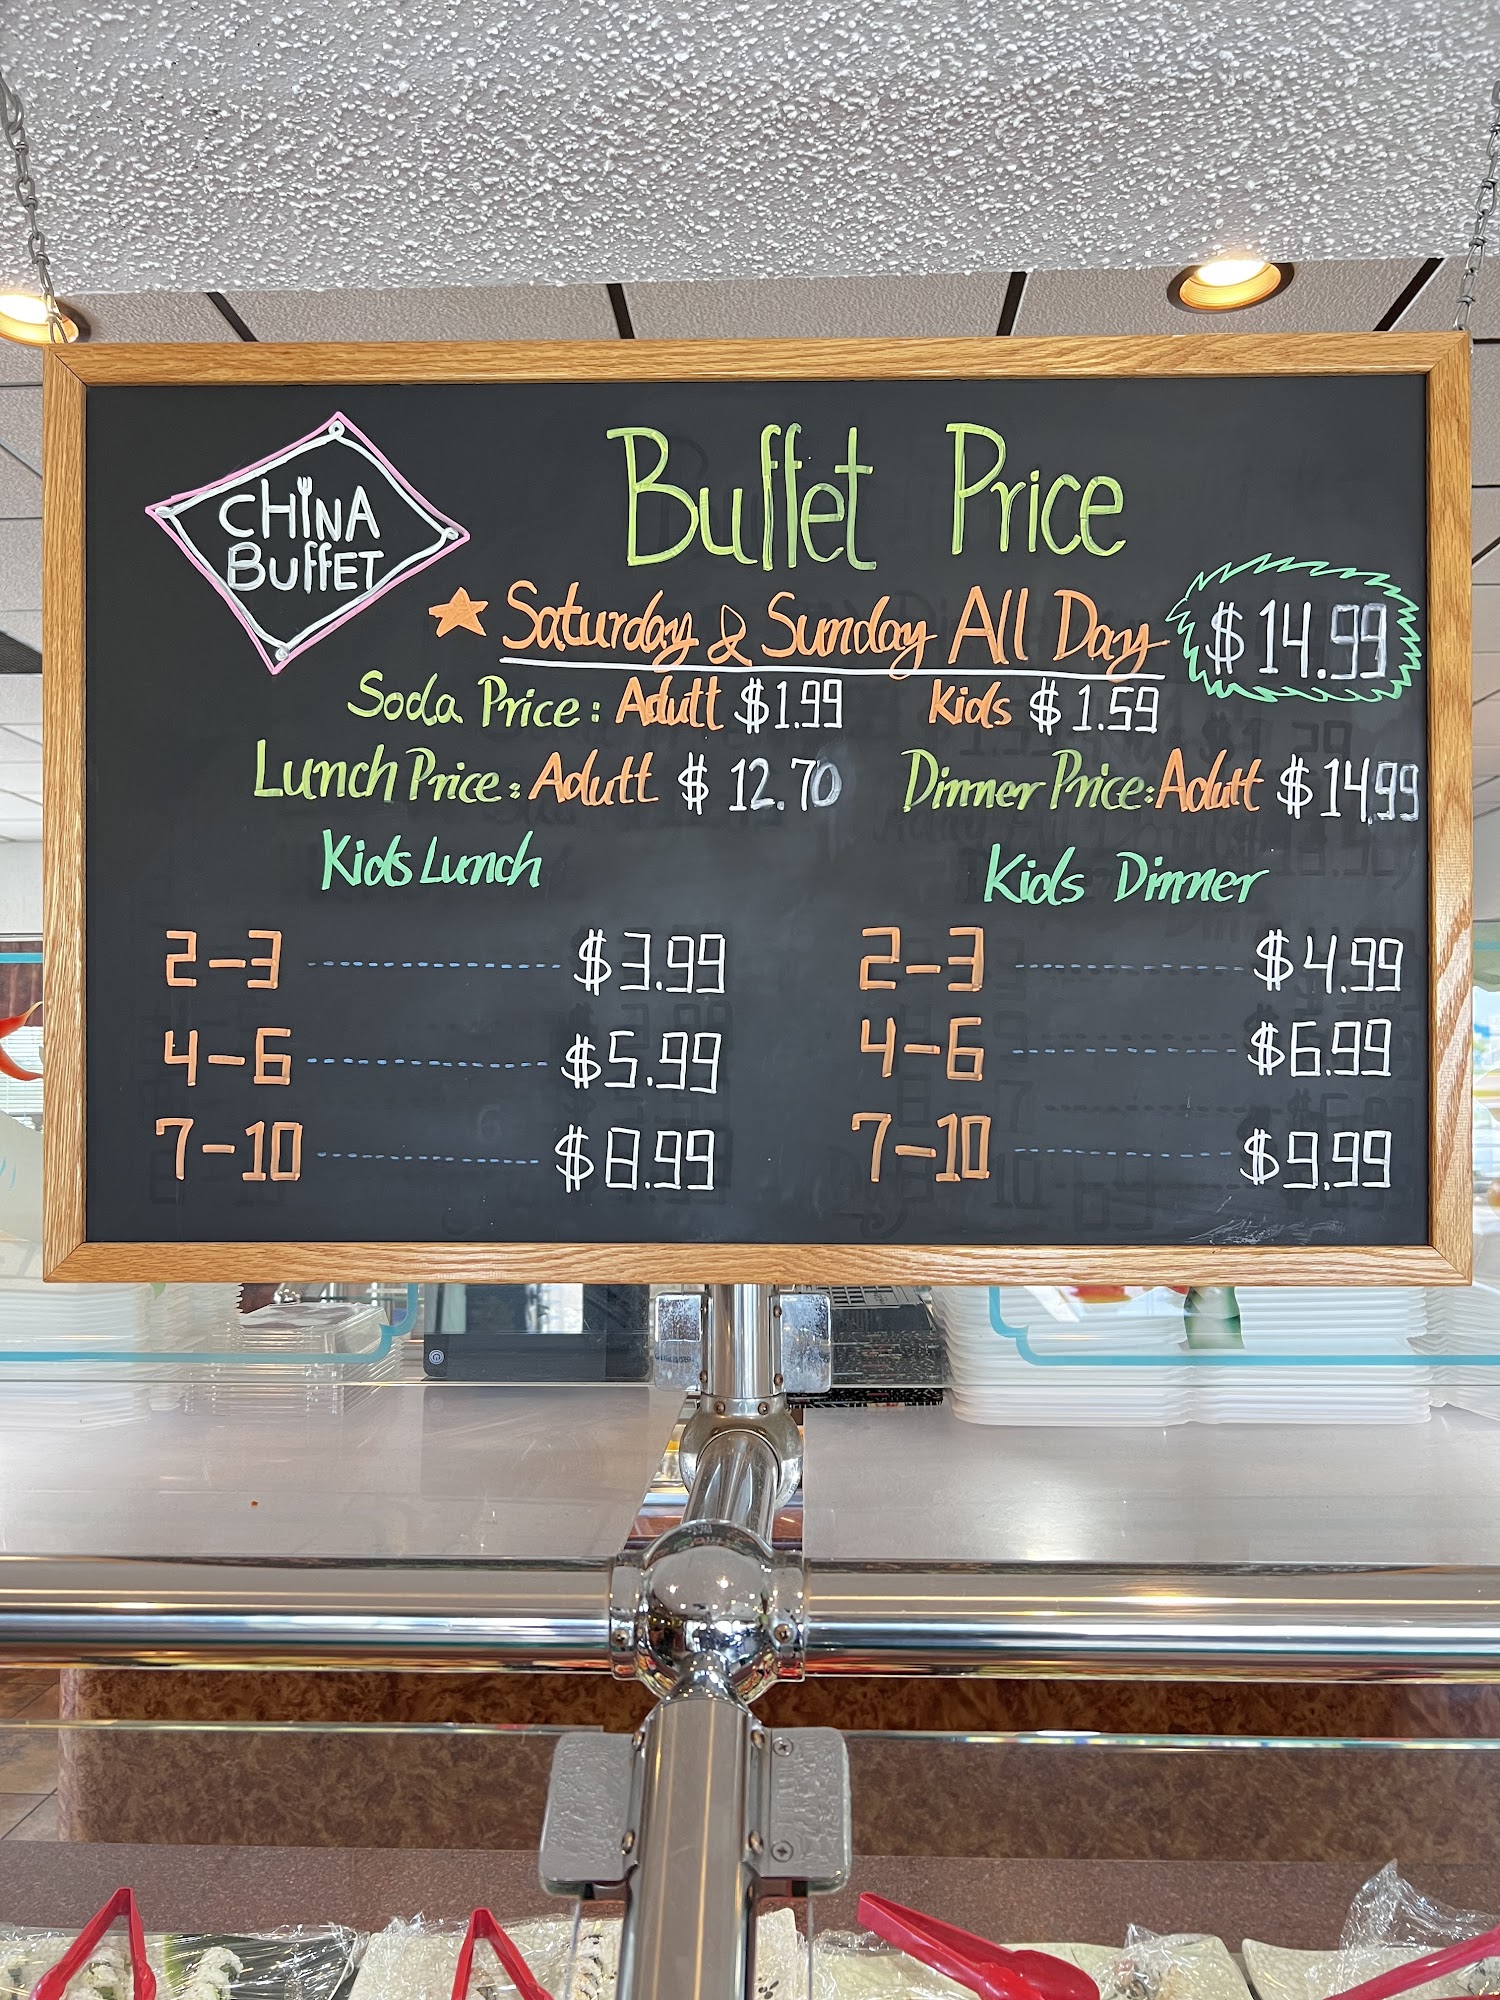 CHINA
BuffET
Buffet Price
★ Saturday & Sunday All Day $14.99
Soda Price: Adutt $1.99 Kids $1.59
Lunch Price: Adutt $12.70 Dinner Price: Adutt $14.99
Kids Lunch Kids Dinner
2-3 ---------- $3.99 2-3 ---------- $4.99
4-6 ---------- $5.99 4-6 ---------- $6.99
7-10 ---------- $8.99 7-10 ---------- $9.99